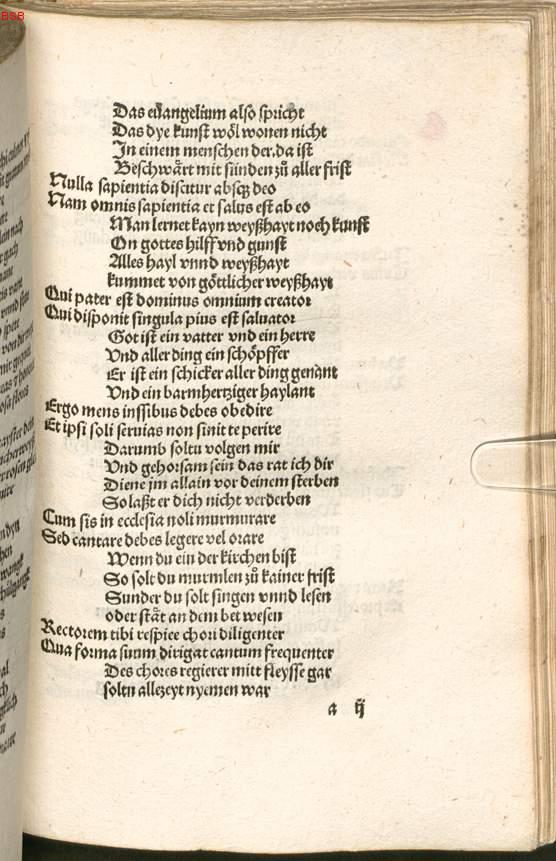 BSB
Das eúangelium also spricht
Das dye kunst wöl wonen nicht
In einem menschen der.da ist
Beschwärt mit sünden zů aller frist
Nulla sapientia discitur absqꝫ deo
Nam omnis sapientia et salus est ab eo
Man lernet kayn weyßhayt noch kunst
On gottes hilff vnd gunst
Alles hayl vnnd weyßhayt
kummet von göttlicher weyßhayt
Qui pater est dominus omnium creator
Qui disponit singula pius est saluator
Got ist ein vatter vnd ein herre
Vnd aller ding ein schöpffer
Er ist ein schicker aller ding genant
Vnd ein barmhertziger haylant
Ergo mens inssibus debes obedire
Et ipsi soli seruias non sinit te perire
Darumb soltu volgen mir
Vnd gehorsam sein das rat ich dir
Diene jm allain vor deinem sterben
So laßt er dich nicht verderben
Cum sis in ecclesia noli murmurare
Sed cantare debes legere vel orare
Wenn du ein der kirchen bist
So solt du murmlen zů kainer frist
Sunder du solt singen vnnd lesen
oder stät an dem bet wesen
Rectorem tibi respice chori diligenter
Qua forma suum dirigat cantum frequenter
Des chores regierer mitt fleysse gar
soltu allezeyt nyemen war
a ij